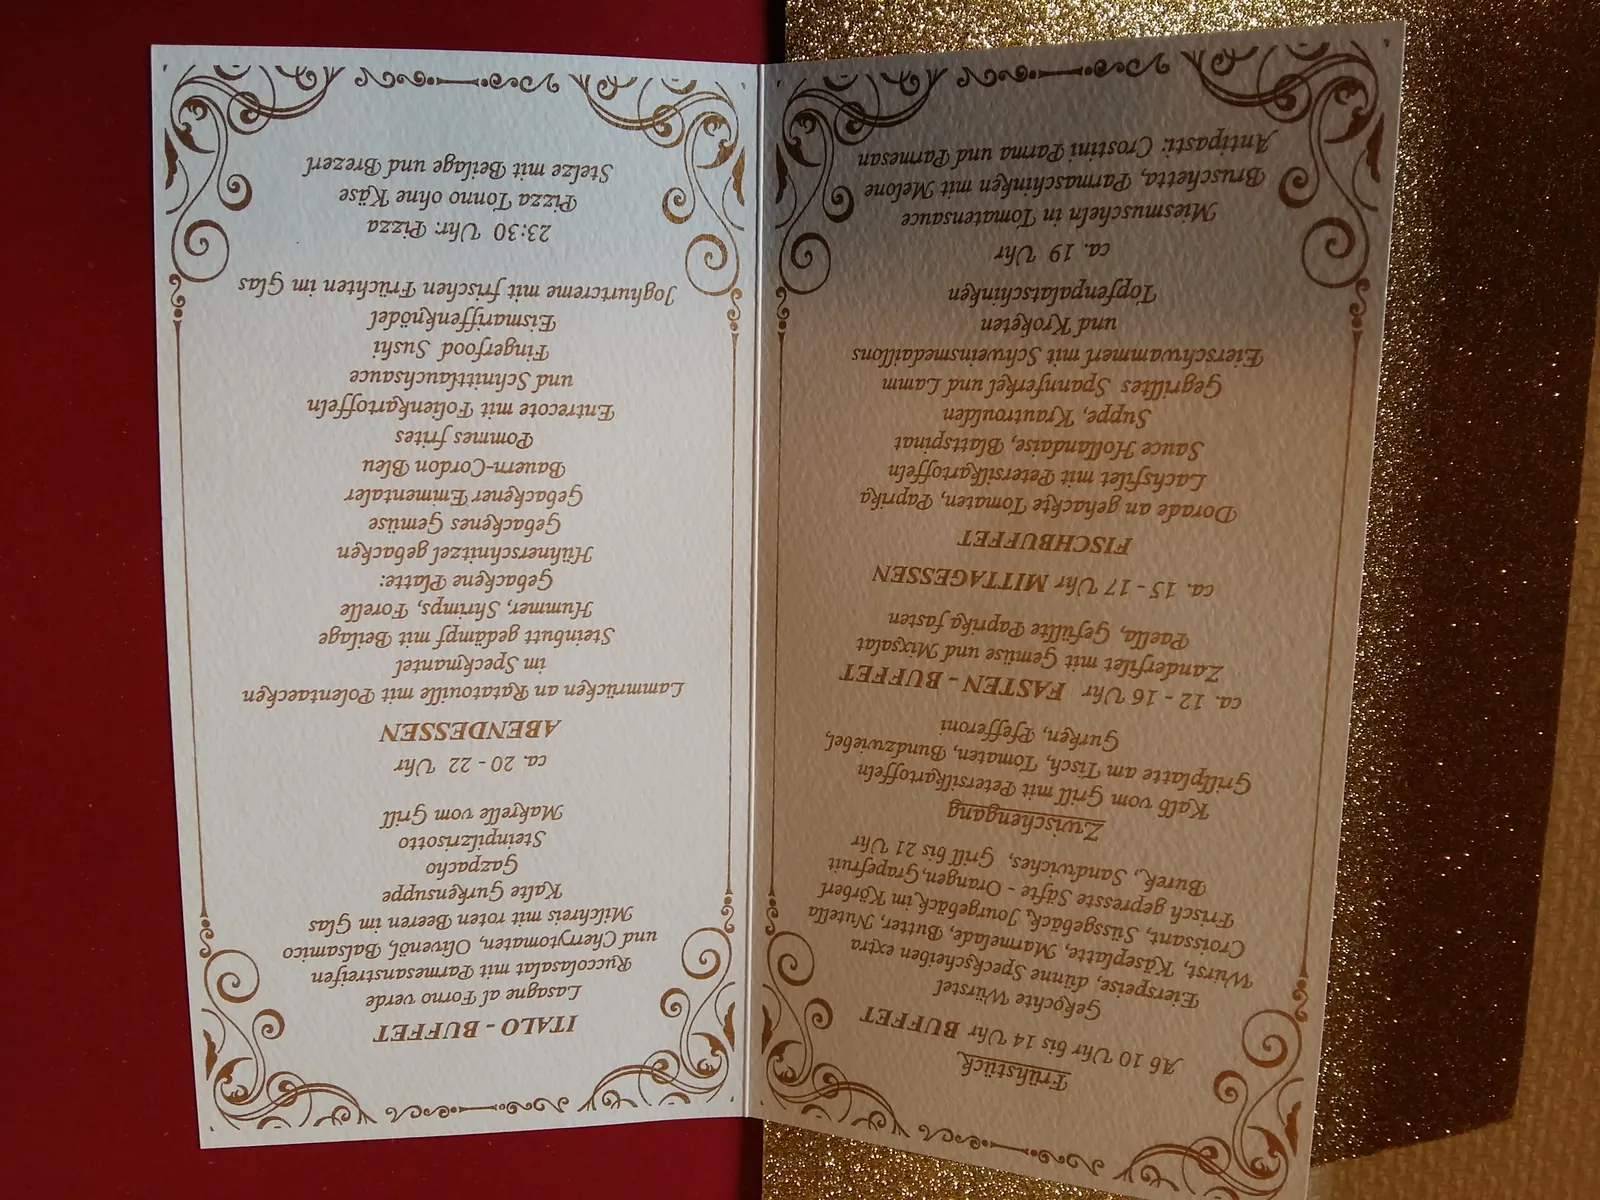 Frühstück
Ab 10 Uhr bis 14 Uhr BUFFET
Gekochte Würstel
Eierspeise, dünne Speckscheiben extra
Wurst, Käseplatte, Marmelade, Butter, Nutella
Croissant, Süssgebäck, Jourgebäck im Körberl
Frisch gepresste Säfte - Orangen, Grapefruit
Burek, Sandwiches, Grill bis 21 Uhr
Zwischengang
Kalb vom Grill mit Petersilkartoffeln
Grillplatte am Tisch, Tomaten, Bundzwiebel,
Gurken, Pfefferoni
ca. 12 - 16 Uhr FASTEN - BUFFET
Zanderfilet mit Gemüse und Mixsalat
Paella, Gefüllte Paprika fasten
ca. 15 - 17 Uhr MITTAGESSEN
FISCHBUFFET
Dorade an gehackte Tomaten, Paprika
Lachsfilet mit Petersilkartoffeln
Sauce Hollandaise, Blattspinat
Suppe, Krautroulden
Gegrilltes Spannferkel und Lamm
Eierschwammerl mit Schweinsmedaillons
und Kroketen
Topfenpalatschinken
ca. 19 Uhr
Miesmuscheln in Tomatensauce
Bruschetta, Parmaschinken mit Melone
Antipasti: Crostini Parma und Parmesan
ITALO - BUFFET
Lasagne al Forno verde
Ruccolasalat mit Parmesanstreifen
und Cherrytomaten, Olivenöl, Balsamico
Milchreis mit roten Beeren im Glas
Kalte Gurkensuppe
Gazpacho
Steinpilzrisotto
Makrelle vom Grill
ca. 20 - 22 Uhr
ABENDESSEN
Lammrücken an Ratatouille mit Polentaecken
im Speckmantel
Steinbutt gedämpf mit Beilage
Hummer, Shrimps, Forelle
Gebackene Platte:
Hühnerschnitzel gebacken
Gebackenes Gemüse
Gebackener Emmentaler
Bauern-Cordon Bleu
Pommes frites
Entrecote mit Folienkartoffeln
und Schnittlauchsauce
Fingerfood Sushi
Eismariffenknödel
Joghurtcreme mit frischen Früchten im Glas
23:30 Uhr: Pizza
Pizza Tonno ohne Käse
Stelze mit Beilage und Brezerl